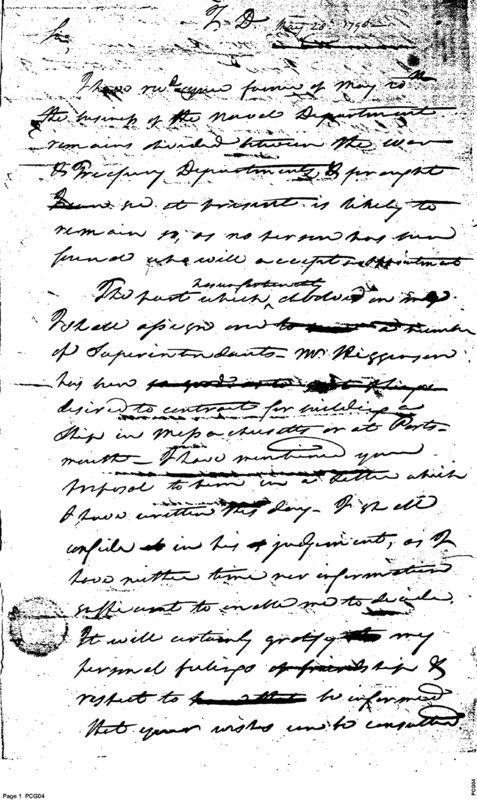 T D May 28th 1798
Sir,
I have recd your favour of May 20th
the business of the Naval Department
remains divided between the War
& Treasury Departments & for aught
I see at present is likely to
remain so, as no person has been
found who will accept
The part which devolved on me
I shall assign to a number
of Superintendants - Mr Higginson
has been
desired to contract for building a
Ship in Massachusetts or at Ports-
mouth - I have mentioned your
proposal to him in a letter which
I have written this day - I shall
confide in his judgement, as I
have neither time nor information
sufficient to enable me to decide.
It will certainly gratify my
personal feelings of friendship &
respect to be informed
that your wishes can be consulted.
Page 1 PCG04
PCG04